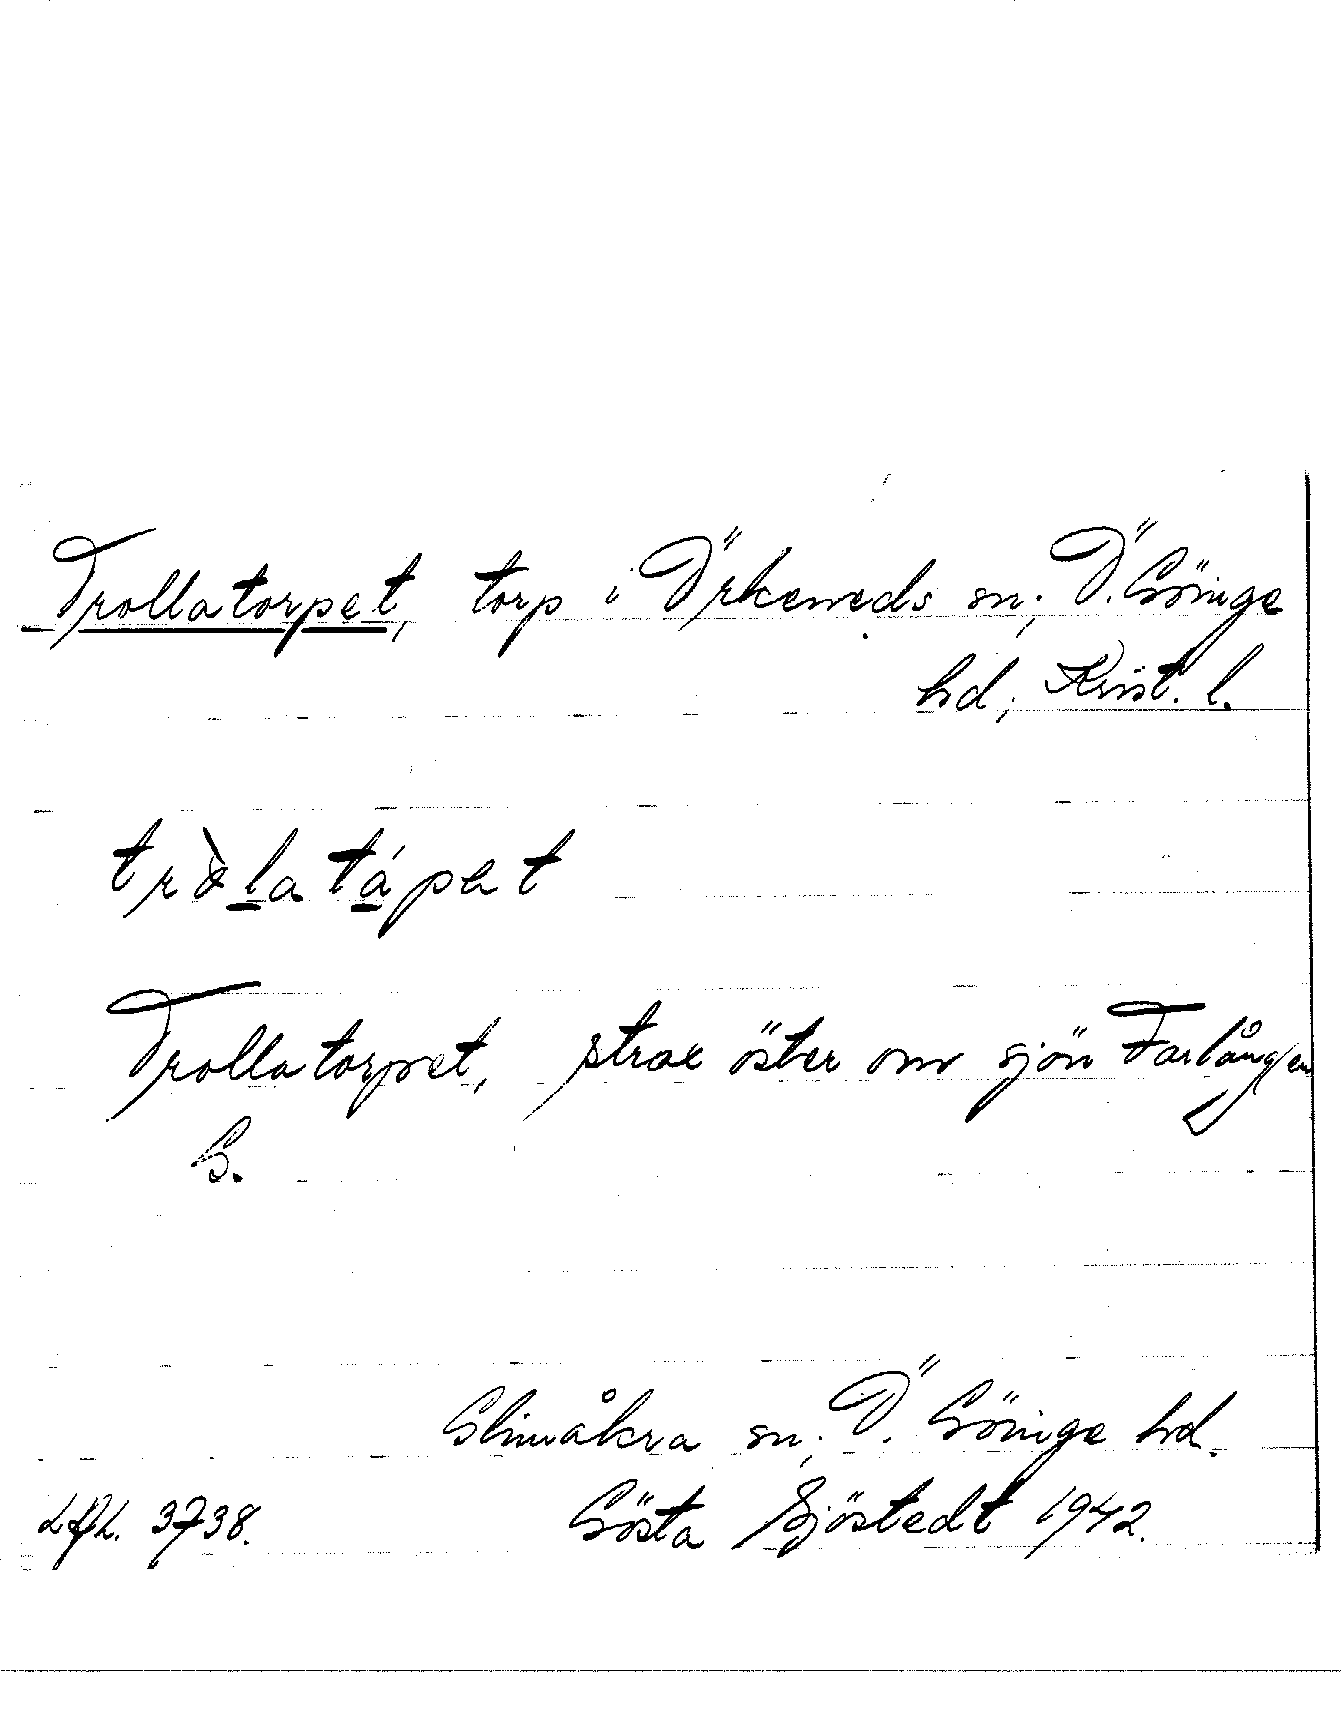 Trollatorpet, torp i Örkeneds sn, Ö. Göinge
hd, Krist. l.
Trollatorpet, strax öster om sjön Farlången
G.
Glimåkra sn, Ö. Göinge hd.
3738. Gösta Sjöstedt 1942.